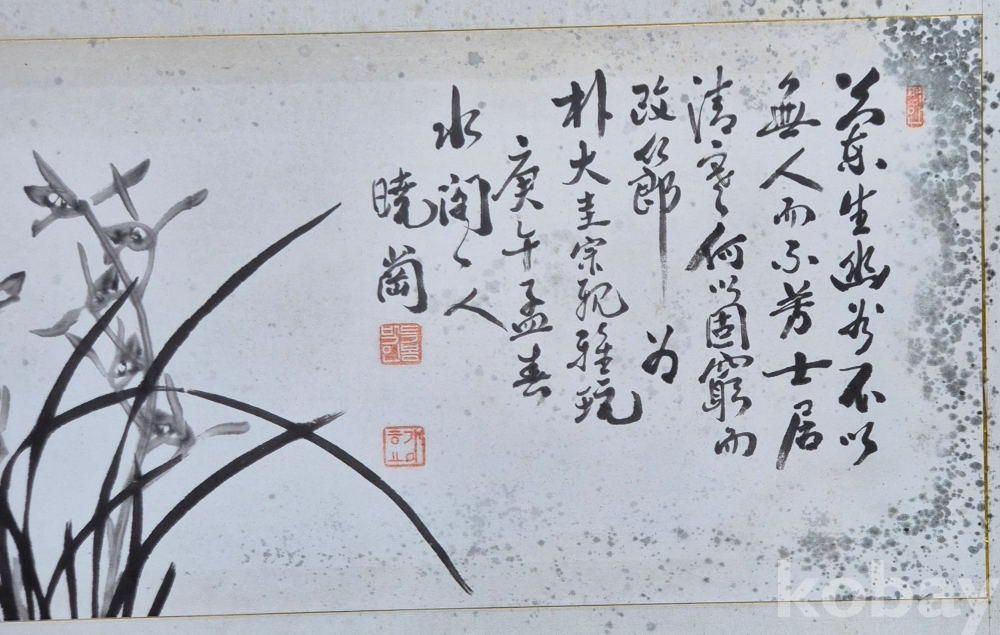 芝蘭生幽谷不以
無人而不芳士居
清寒何以固窮而
改節 為
朴大圭宗親雅玩
庚午孟春
水人
曉崗
kobay